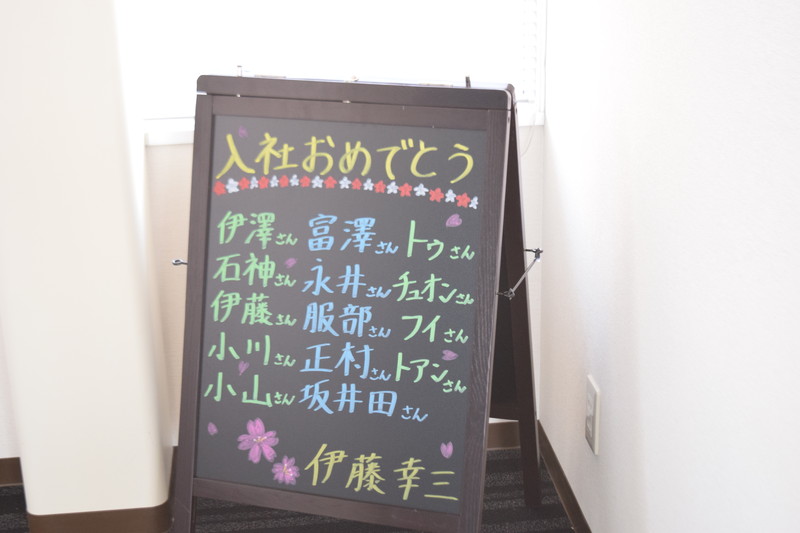 入社おめでとう
伊澤さん 富澤さん トゥさん
石神さん 永井さん チュオンさん
伊藤さん 服部さん フイさん
小川さん 正村さん トアンさん
小山さん 坂井田さん
伊藤幸三